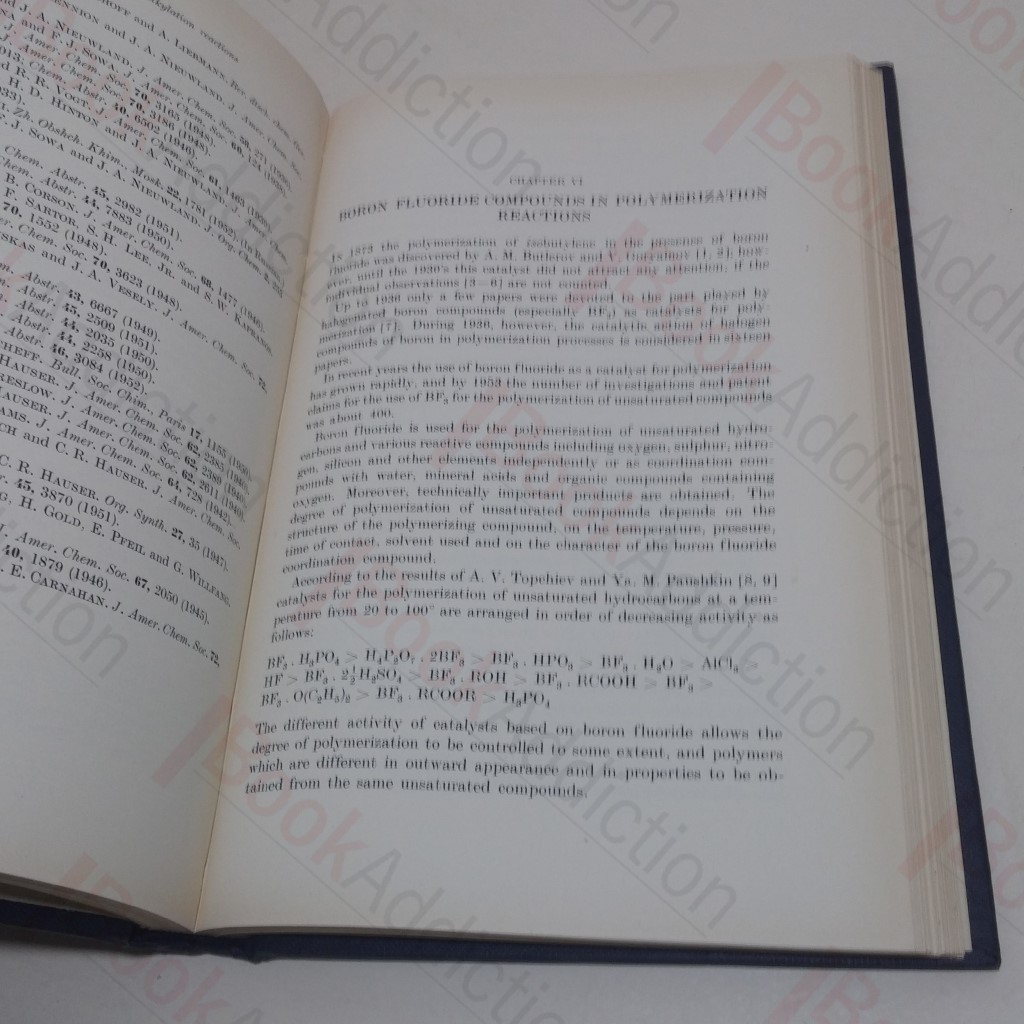 kylation reactions
HOFF and A. LIEBMANN, Ber. dtsch. chem. Ges.
ENNION and J. A. NIEUWLAND, J. Amer. Chem. Soc.
J. A. NIEUWLAND, J. Amer. Chem. Soc. 56, 271
NA and F. J. SOWA, J. Amer. Chem. Soc. 60, 124
J. Amer. Chem. Soc. 70, 3165 (1948).
913; Chem. Abstr. 40, 6502 (1946).
d R. R. VOGT, J. Amer. Chem. Soc. 61, 1463
H. D. HINTON and J. A. NIEUWLAND,
933).
Zh. Obshch. Khim., Mosk. 22, 1781 (1952)
F. J. SOWA and J. A. NIEUWLAND, J. Org. Chem.
Chem. Abstr. 45, 2982 (1951).
Chem. Abstr. 44, 7883 (1950).
B. CORSON, J. Amer. Chem. Soc. 68, 1477 (1946).
F. SARTOR, S. H. LEE, JR. and S. W. KAPRANOS
70, 1552 (1948).
er. Chem. Soc. 70, 3623 (1948).
USKAS and J. A. VESELY J. Amer. Chem. Soc. 72,
m. Abstr. 43, 6667 (1949).
Abstr. 45, 2509 (1951).
Abstr. 44, 2035 (1950).
Abstr. 44, 2258 (1950).
Abstr. 46, 3084 (1952).
CHEFF. Bull. Soc. Chim., Paris 17, 1155 (1950).
HAUSER, J. Amer. Chem. Soc. 62, 2385 (1940).
RESLOW, J. Amer. Chem. Soc. 62, 2389 (1940).
HAUSER, J. Amer. Chem. Soc. 62, 2611 (1940).
AMS, J. Amer. Chem. Soc. 64, 728 (1942).
CH and C. R. HAUSER, J. Amer. Chem. Soc.
C. R. HAUSER, Org. Synth. 27, 35 (1947).
r. 45, 3870 (1951).
G. H. GOLD, E. PFEIL and G. WILLFANG,
J. Amer. Chem. Soc. 67, 2050 (1945).
40, 1879 (1946).
E. CARNAHAN, J. Amer. Chem. Soc. 72,
CHAPTER VI
BORON FLUORIDE COMPOUNDS IN POLYMERIZATION
REACTIONS
IN 1873 the polymerization of isobutylene in the presence of boron
fluoride was discovered by A. M. Butlerov and Goryainov [1, 2]; how-
ever, until the 1930's this catalyst did not attract any attention, if the
individual observations [3—6] are not counted.
Up to 1936 only a few papers were devoted to the part played by
halogenated boron compounds (especially BF₃) as catalysts for poly-
merization [7]. During 1936, however, the catalytic action of halogen
compounds of boron in polymerization processes is considered in sixteen
papers.
In recent years the use of boron fluoride as a catalyst for polymerization
has grown rapidly, and by 1953 the number of investigations and patent
claims for the use of BF₃ for the polymerization of unsaturated compounds
was about 400.
Boron fluoride is used for the polymerization of unsaturated hydro-
carbons and various reactive compounds including oxygen, sulphur, nitro-
gen, silicon and other elements independently or as coordination com-
pounds with water, mineral acids and organic compounds containing
oxygen. Moreover, technically important products are obtained. The
degree of polymerization of unsaturated compounds depends on the
structure of the polymerizing compound, on the temperature, pressure,
time of contact, solvent used and on the character of the boron fluoride
coordination compound.
According to the results of A. V. Topchiev and Ya. M. Paushkin [8, 9]
catalysts for the polymerization of unsaturated hydrocarbons at a tem-
perature from 20 to 100° are arranged in order of decreasing activity as
follows:
BF₃ . H₃PO₄ > H₄P₂O₇ . 2BF₃ > BF₃ . HPO₃ > BF₃ . H₂O > AlCl₃ >
HF > BF₃ . 2½H₂SO₄ > BF₃ . ROH > BF₃ . RCOOH > BF₃ >
BF₃ . O(C₂H₅)₂ > BF₃ . RCOOR > H₃PO₄
The different activity of catalysts based on boron fluoride allows the
degree of polymerization to be controlled to some extent, and polymers
which are different in outward appearance and in properties to be ob-
tained from the same unsaturated compounds.